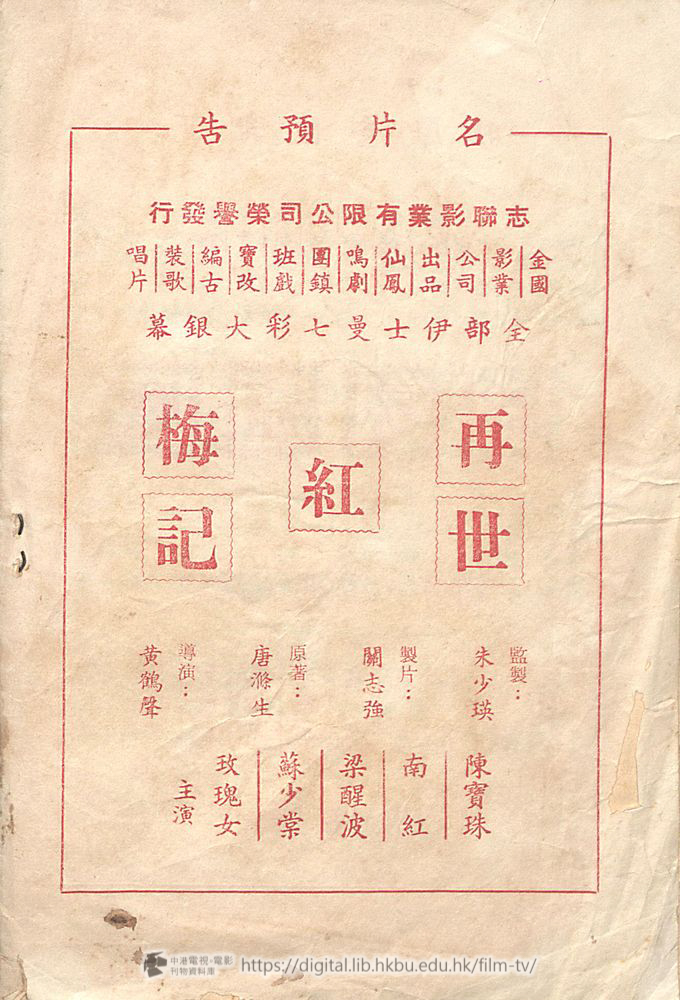 名片預告
志聯影業有限公司榮譽發行
金國影業公司出品仙鳳鳴劇團鎮班戲寶改編古裝歌唱片
全部伊士曼七彩大銀幕
再世紅梅記
監製：朱少瑛
製片：關志強
原著：唐滌生
導演：黃鶴聲
陳寶珠
南紅
梁醒波
蘇少棠
玫瑰女
主演
中港電視·電影
刊物資料庫
https://digital.lib.hkbu.edu.hk/film-tv/